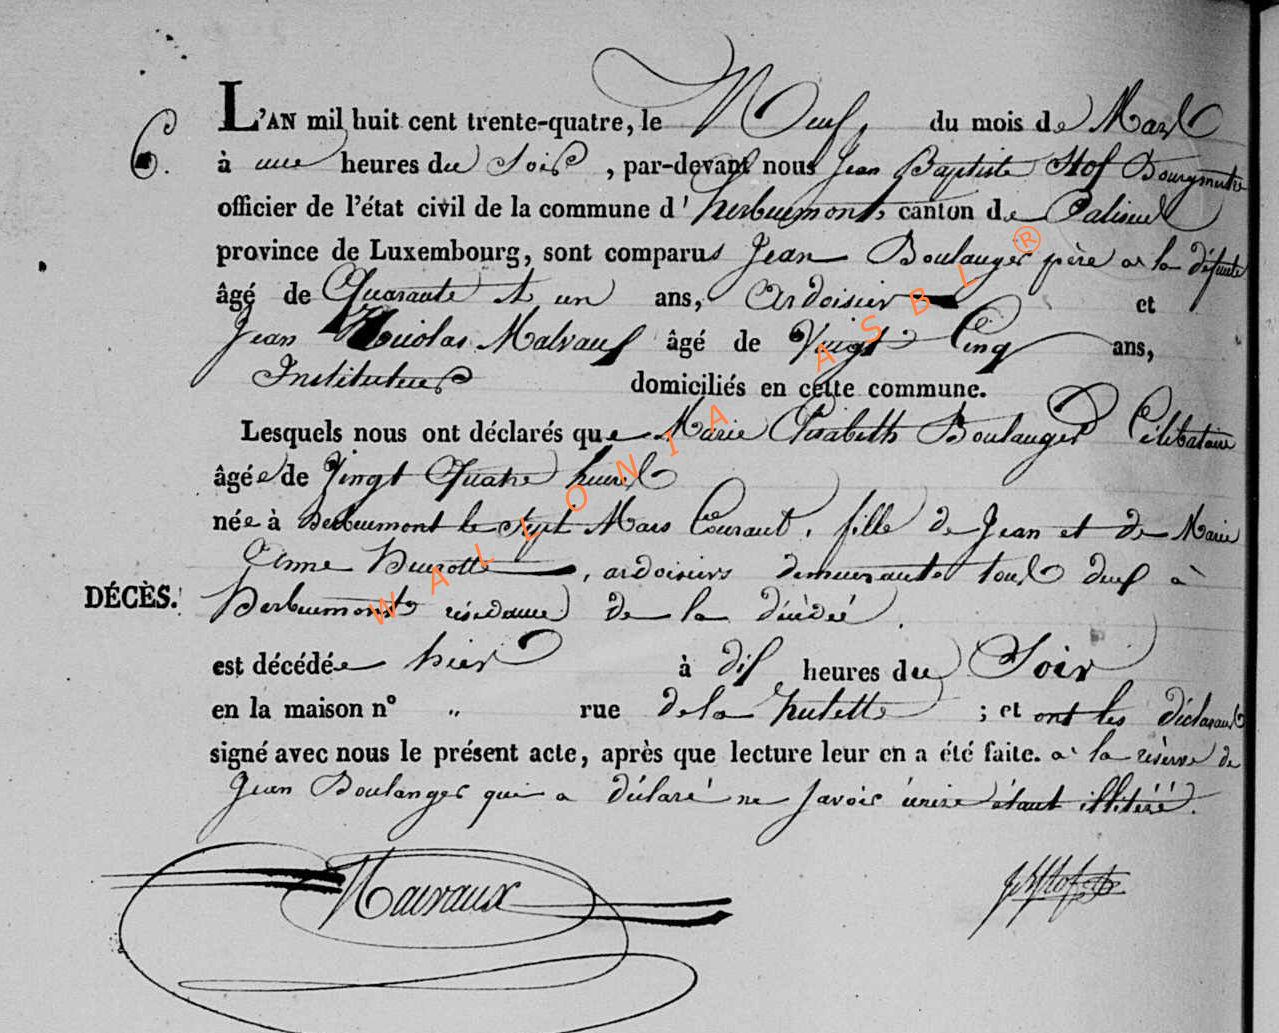 L'AN mil huit cent trente-quatre, le Neuf, du mois de Mars
6. à une heures du Soir, par-devant nous Jean Baptiste Stof Bourgmestre
officier de l'état civil de la commune d'herbeumont, canton de Paliseul
province de Luxembourg, sont comparus Jean Boulanger père a la défunte
âgé de Quarante et un ans, Ardoisier et
Jean Nicolas Malvaux âgé de Vingt Cinq ans,
Instituteur domiciliés en cette commune.
Lesquels nous ont déclarés que Marie Elisabeth Boulanger Célibataire
âgée de Vingt Quatre heures
née à herbeumont le Sept Mars Courant, fille de Jean et de Marie
Anne , ardoisiers demeurants tous deux à
DÉCÈS. Herbeumont résidance de la décèdée.
est décédée hier à dix heures du Soir
en la maison n° " rue de la hulette ; et ont les déclarans
signé avec nous le présent acte, après que lecture leur en a été faite. a la réserve de
Jean Boulanger qui a déclaré ne savoir écrire étant illitéré.
WALLONIA ASBL ®